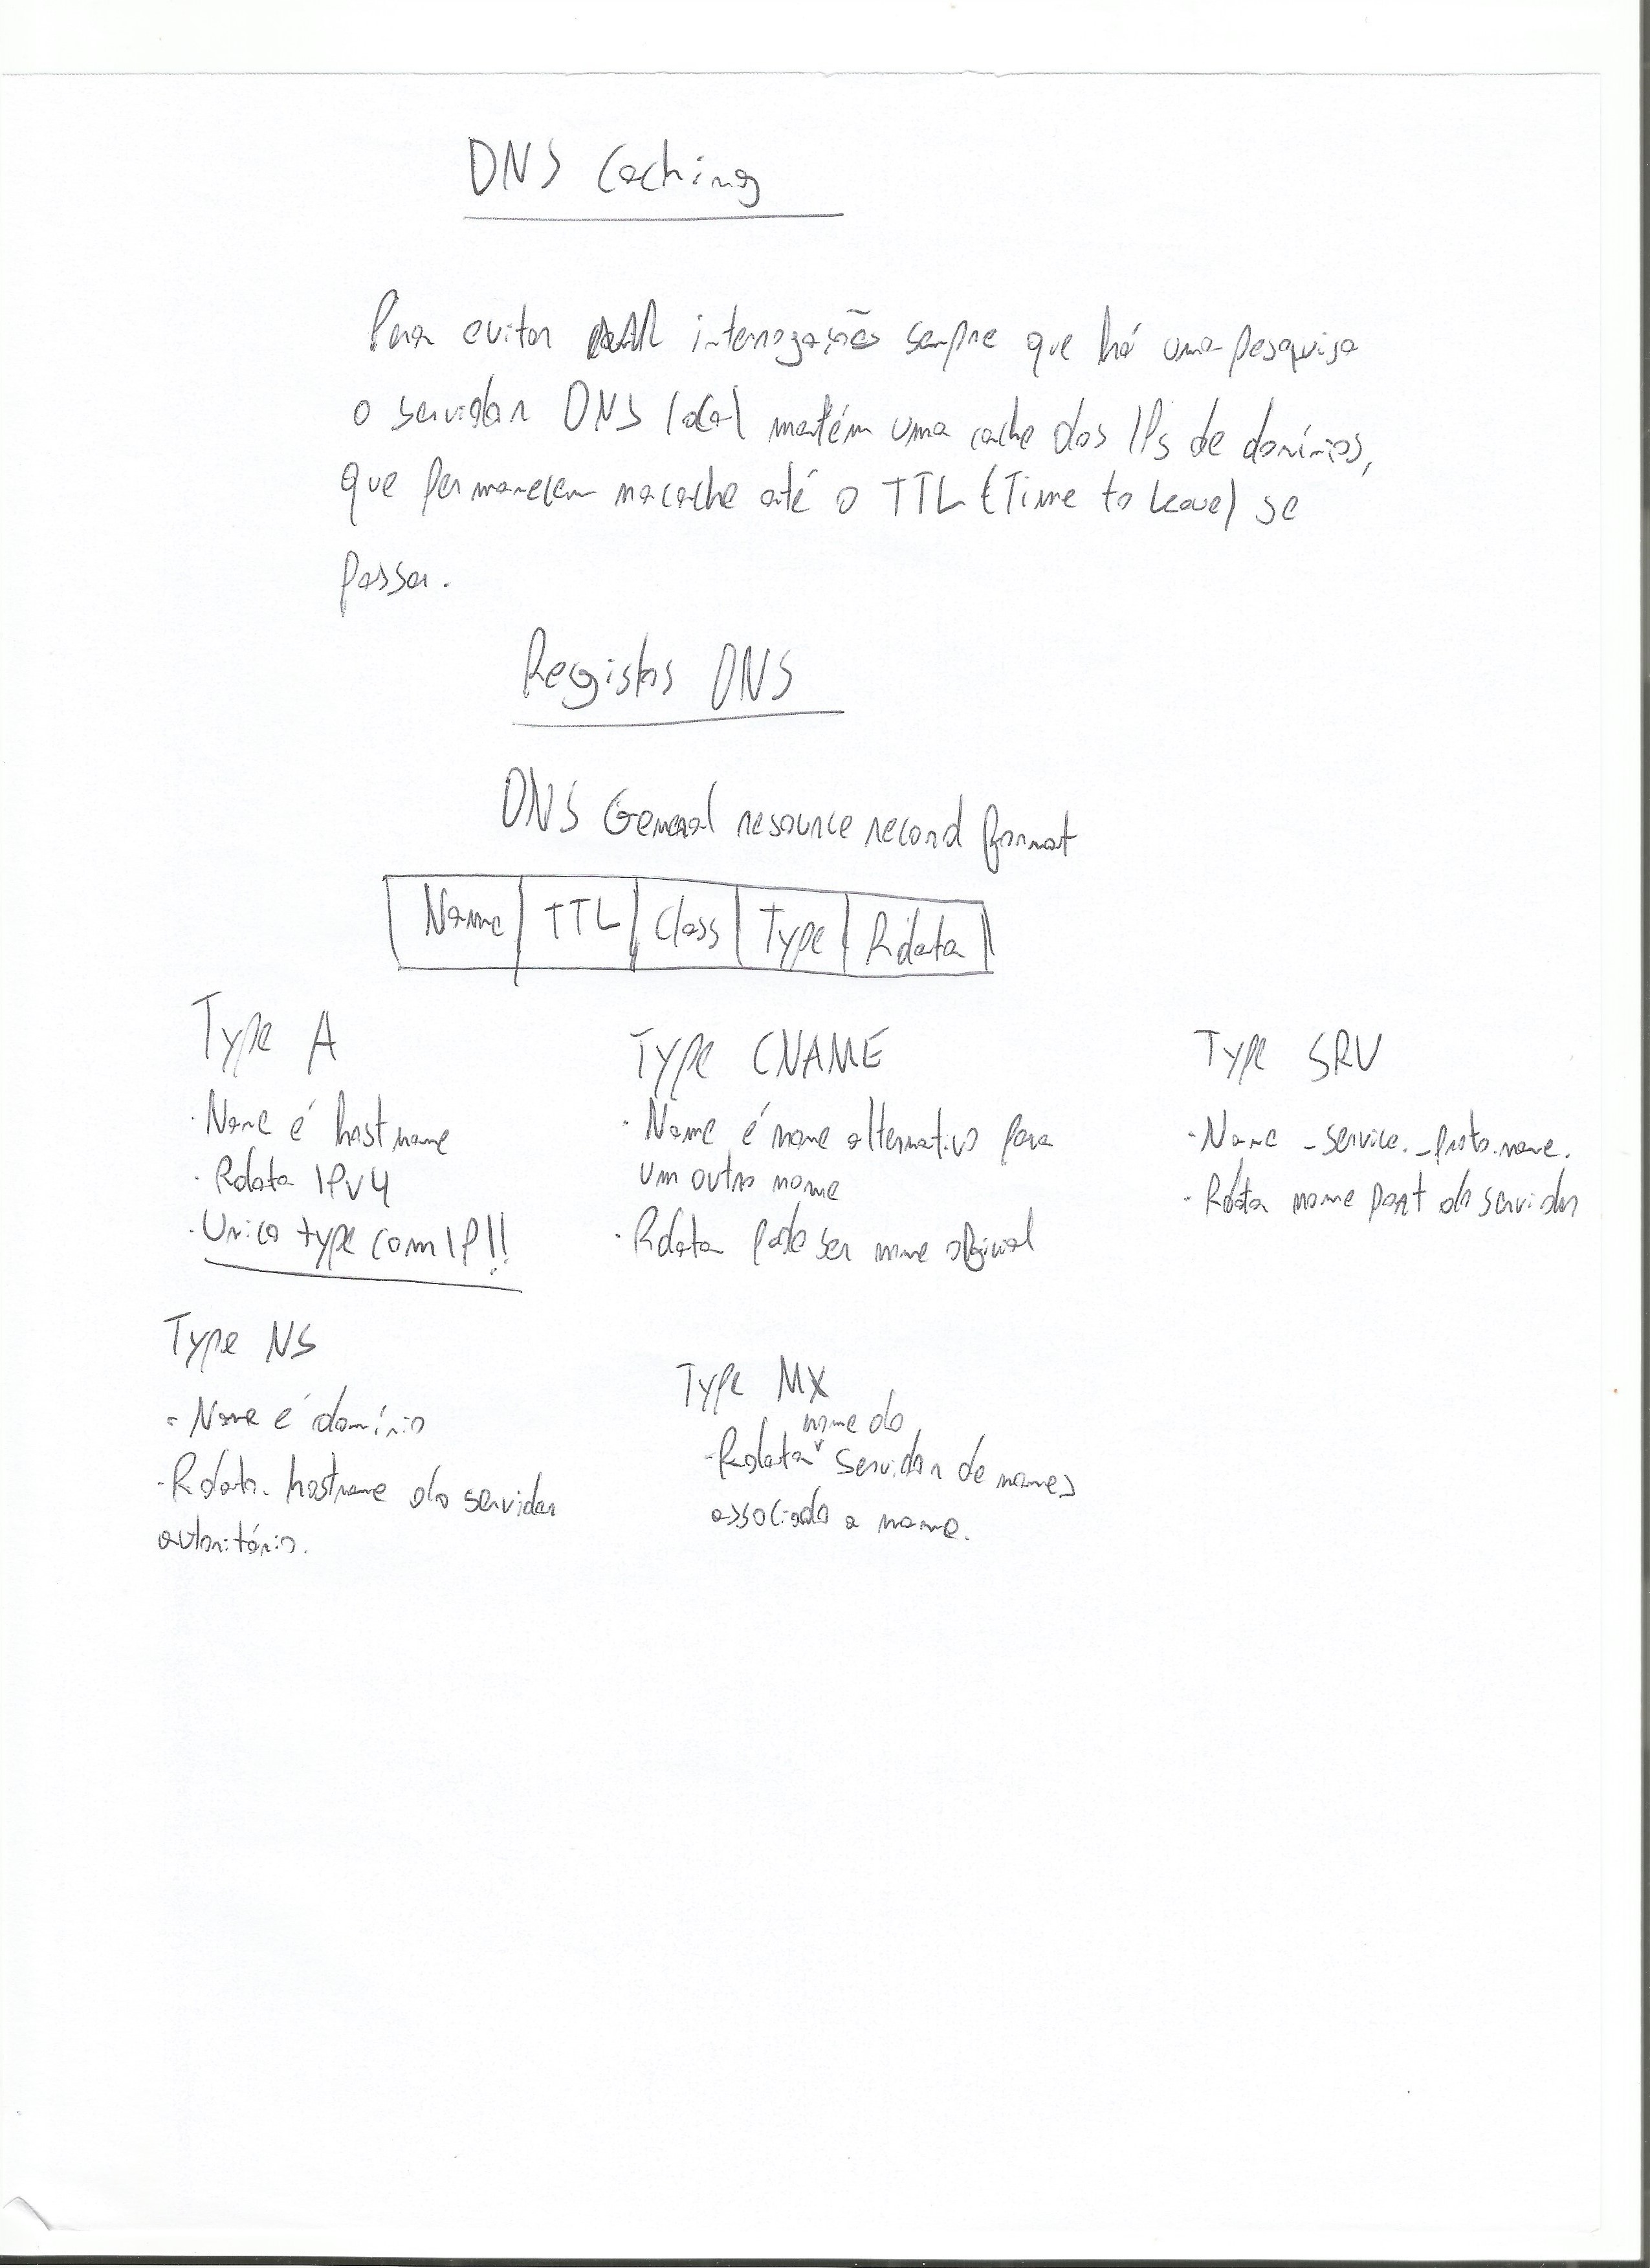 DNS Caching
Para evitar interrogações sempre que há uma pesquisa
o servidor DNS local mantém uma cache dos IPs de domínios,
que permanecem na cache até o TTL (Time to Leave) se
passar.
Registos DNS
DNS General resource record format
Name TTL Class Type Rdata
Type A
· Name é hostname
· Rdata IPv4
· Unico type com IP!!
Type CNAME
· Name é nome alternativo para
um outro nome
· Rdata pode ser nome original
Type SRV
· Name _service._proto.name.
· Rdata nome port do servidor
Type NS
- Name é domínio
- Rdata. hostname do servidor
autoritário.
Type MX
- Rdata nome do servidor de nomes
associado a name.